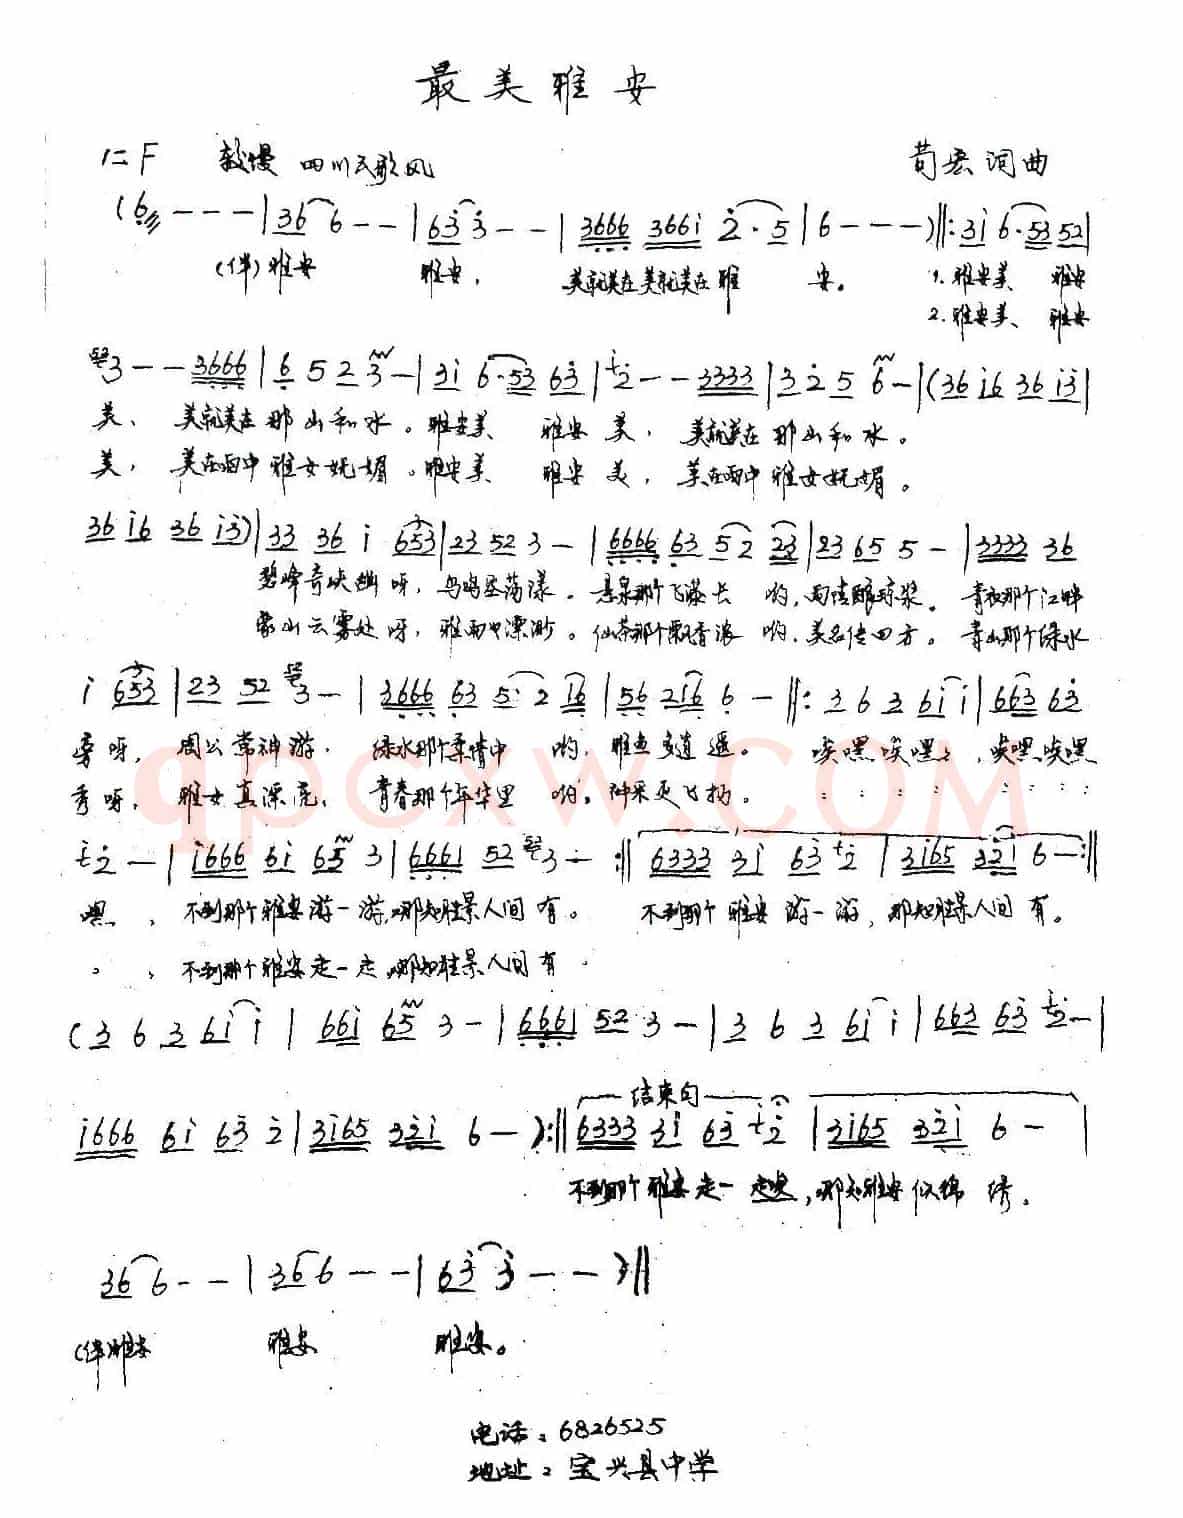 最美雅安
1=F 较慢 四川民歌风 苟宏词曲
(6 - - - | 36 6 - - | 63 3 - - | 3666 3661 2·5 | 6 - - - ) ‖: 31 6·53 52 |
(伴)雅安 雅安, 美就美在美就美在雅 安。 1.雅安美 雅安
2.雅安美、 雅安
53 3 - - 3666 | 6 5 2 3 - | 31 6·53 63 | 2 - - 3333 | 3 2 5 6 - | (36 16 36 13 |
美、 美就美在那山和水。雅安美 雅安美, 美就美在那山和水。
美, 美在雨中雅女妩媚。雅安美 雅安美, 美在雨中雅女妩媚。
36 16 36 13) | 33 36 1 653 | 23 52 3 - | 6666 63 5 2 23 | 23 65 5 - | 3333 36
碧峰奇峡幽呀, 鸟鸣空荡漾。 悬泉那个飞瀑长 哟, 雨洁酿琼浆。 青衣那个江畔
蒙山云雾处呀, 雅雨中漂渺。仙茶那个飘香浪 哟, 美名传四方。 青山那个绿水
1 653 | 23 52 3 - | 3666 63 5·2 16 | 56 216 6 - ‖: 3 6 3 61 1 | 663 63
旁呀, 周公常神游, 绿水那个柔情中 哟, 雅鱼多逍遥。 唉嘿唉嘿 , 唉嘿唉嘿
秀呀, 雅女真漂亮, 青春那个年华里 哟, 神采更飞扬。 : : : : : : : :
qpcxw.COM
2 - | 1666 61 65 3 | 6661 52 3 - :‖ 6333 31 63 2 | 3165 321 6 - :‖
嘿, 不到那个雅安游一游,哪知胜景人间有。 不到那个雅安游一游, 哪知胜景人间有。
。 , 不到那个雅安走一走,哪知胜景人间有。
(3 6 3 61 1 | 661 65 3 - | 6661 52 3 - | 3 6 3 61 1 | 663 63 2 - |
结束句
1666 61 63 2 | 3165 321 6 - ):‖ 6333 31 63 2 | 3165 321 6 - |
不到那个雅安走一走, 哪知雅安似锦绣。
36 6 - - | 36 6 - - | 63 3 - - ) ‖
(伴)雅安 雅安 雅安。
电话:6826525
地址:宝兴县中学